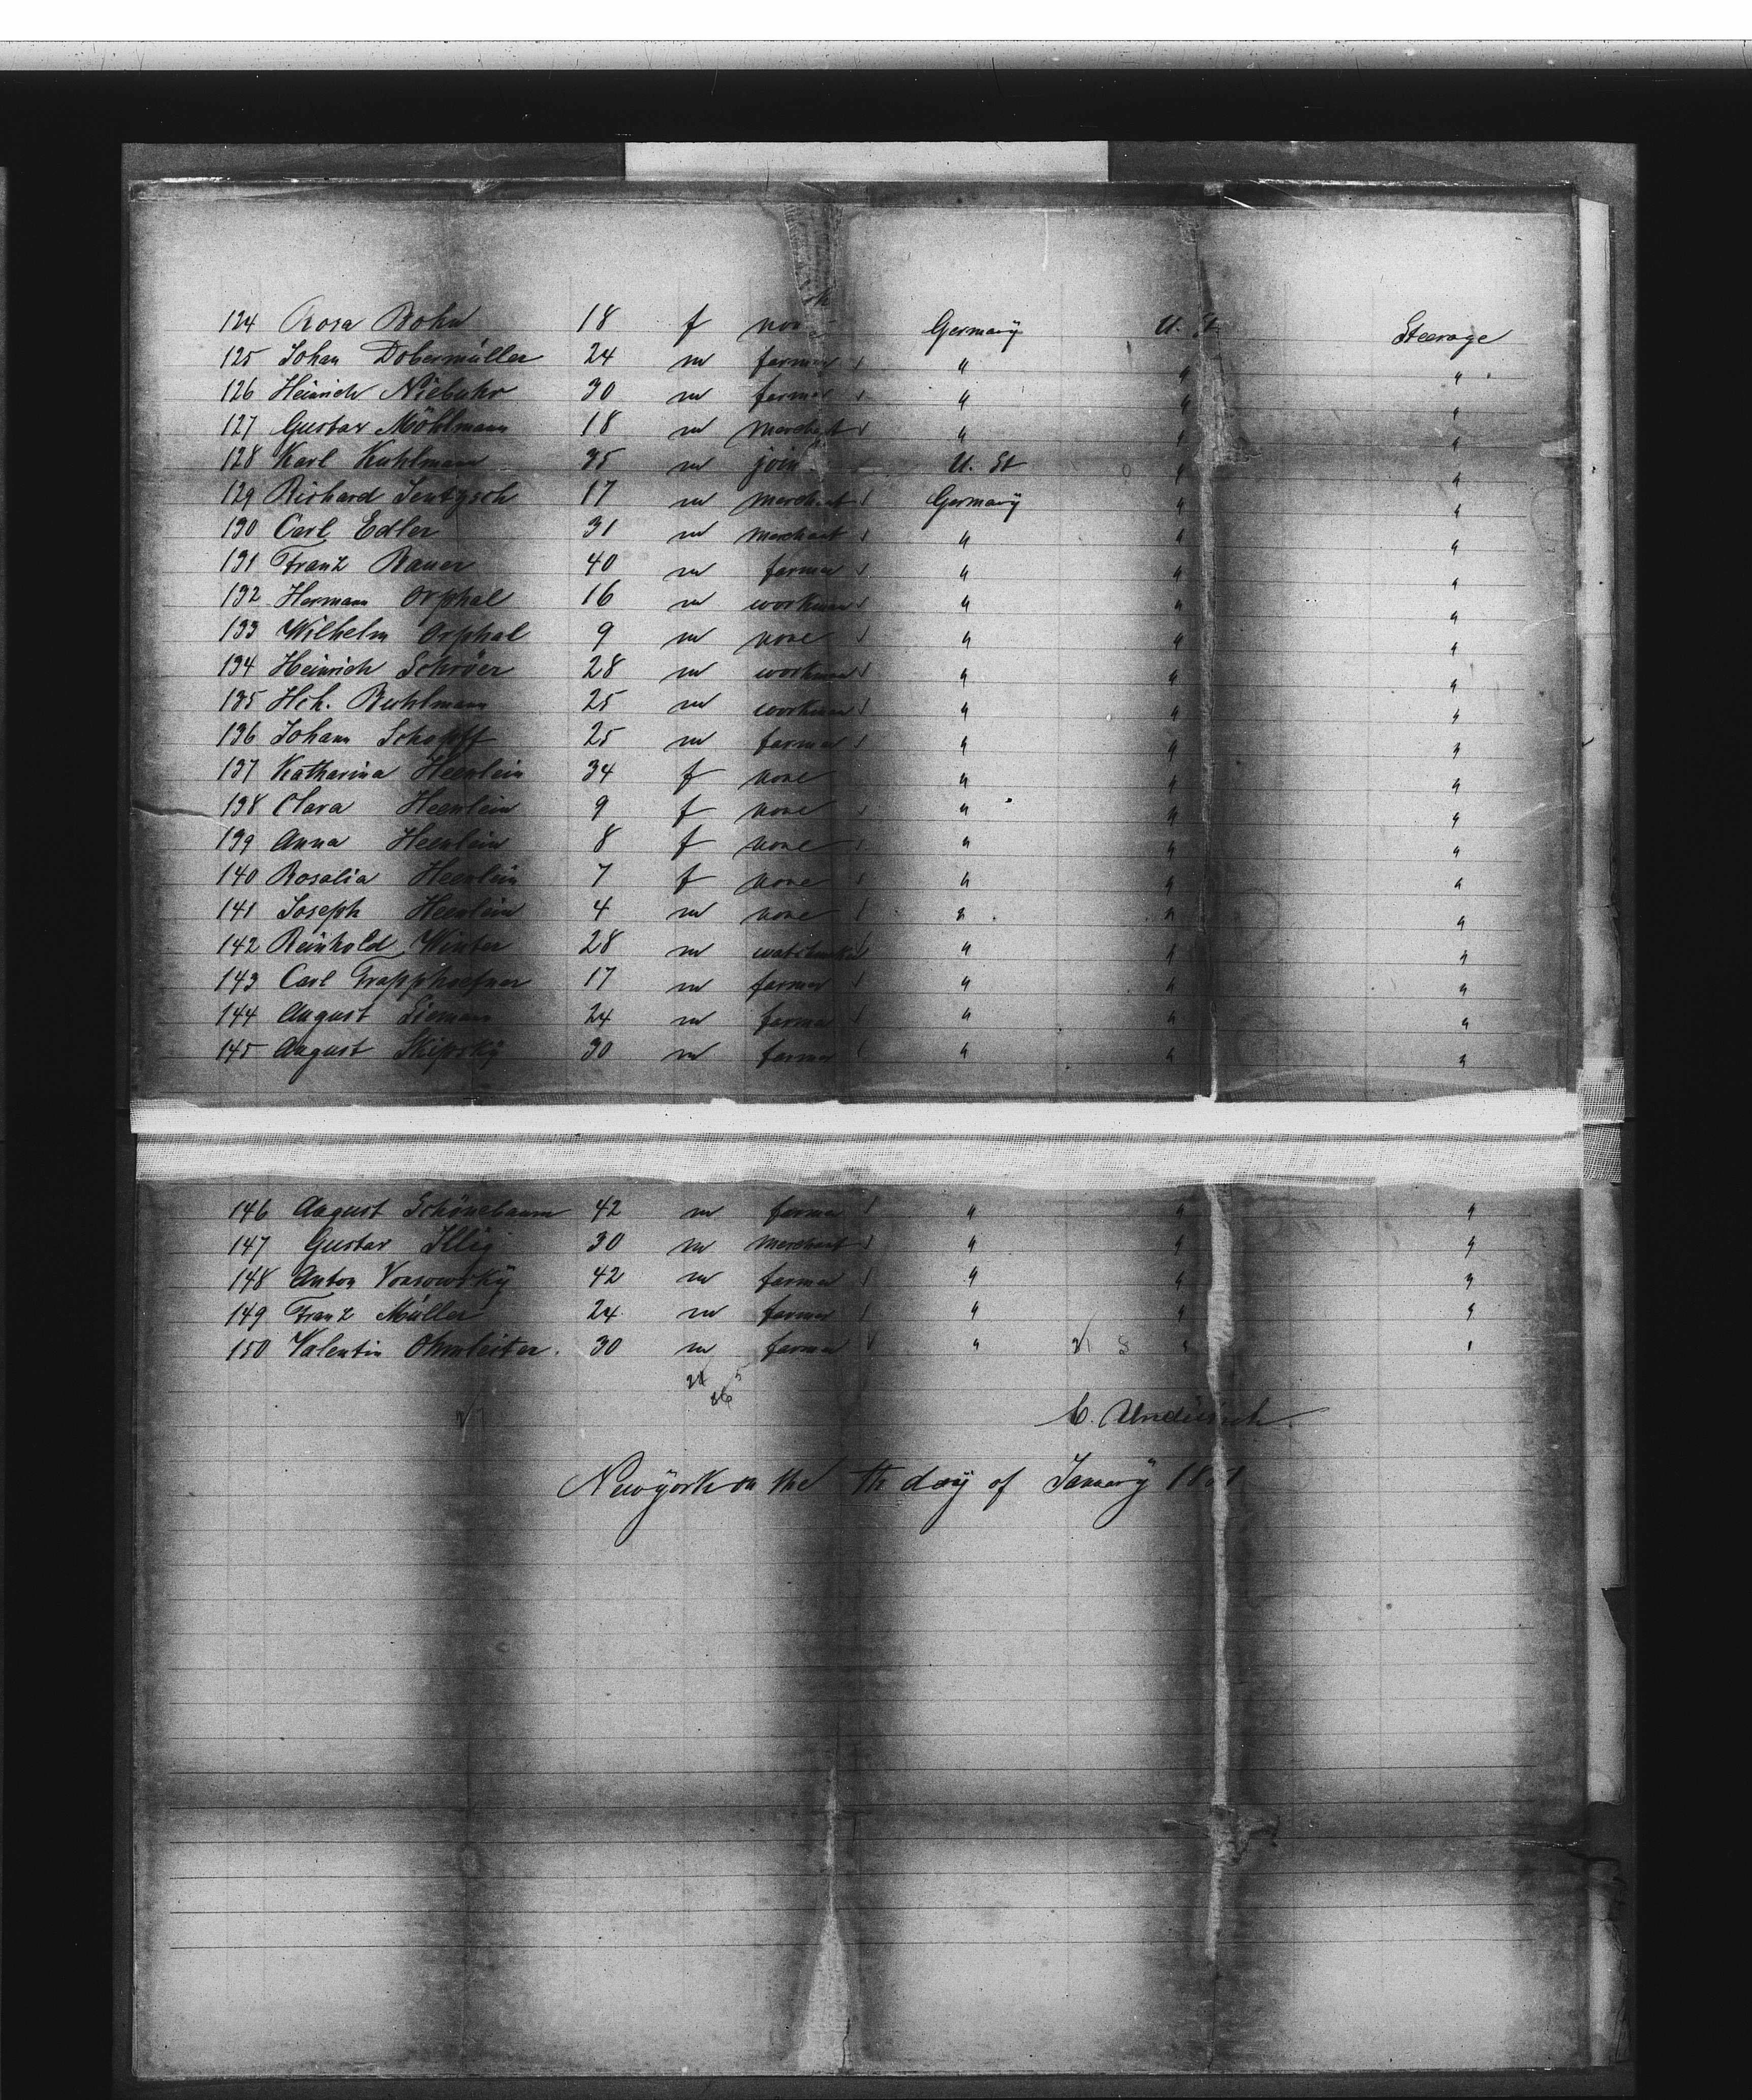 124 Rosa Bohn 18 f none Germany U. St Steerage
125 Johan Dobermüller 24 m farmer " " "
126 Heinrich Niebuhr 30 m farmer " " "
127 Gustav Möhlmann 18 m merchant " " "
128 Karl Kuhlmann 35 m join U. St " "
129 Richard Jentzsch 17 m merchant Germany " "
130 Carl Edler 31 m merchant " " "
131 Franz Bauer 40 m farmer " " "
132 Hermann Orphal 16 m workman " " "
133 Wilhelm Orphal 9 m none " " "
134 Heinrich Schröer 28 m workman " " "
135 Hch. Buhlmann 25 m workman " " "
136 Johann Schopff 25 m farmer " " "
137 Katharina Heenlein 34 f none " " "
138 Clara Heenlein 9 f none " " "
139 Anna Heenlein 8 f none " " "
140 Rosalia Heenlein 7 f none " " "
141 Joseph Heenlein 4 m none " " "
142 Reinhold Winter 28 m " " "
143 Carl Trapphoefner 17 m farmer " " "
144 August Siemann 24 m farmer " " "
145 August Skipsky 30 m farmer " " "
146 August Schönebaum 42 m farmer " " "
147 Gustav Illig 30 m merchant " " "
148 Anton 42 m farmer " " "
149 Franz Müller 24 m farmer " " "
150 Valentin Ohmleiter. 30 m farmer " " "
C. Undütsch
Newyork on the th day of January 18